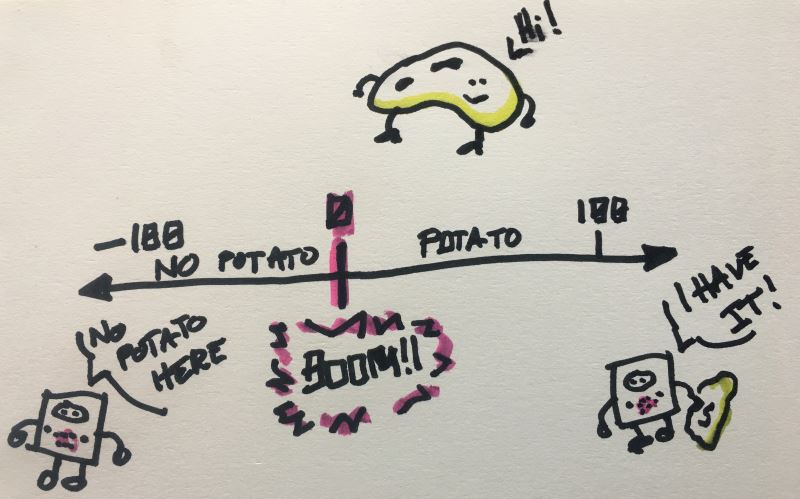 Hi!
0
-100
100
NO POTATO
POTATO
NO
POTATO
HERE
BOOM!!
I HAVE
IT!